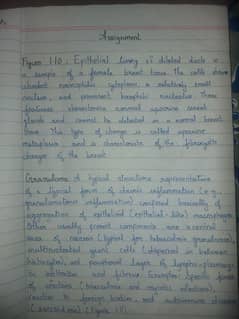 Assignment
Figure 1.10 : Epithelial lining of dilated ducts in
a sample of a female breast tissue. The cells show
abundant eosinophilic cytoplasm, a relatively small
nucleus, and prominent basophilic nucleolus. These
features characterize normal apocrine sweat
glands and cannot be detected in a normal breast
tissue. This type of change is called apocrine
metaplasia and is characteristic of the fibrocystic
changes of the breast.
Granuloma: A typical structure representative
of a typical form of chronic inflammation (e.g.,
granulomatous inflammation) composed basically of
aggregation of epithelioid (epithelial-like) macrophages.
Other usually present components are a central
area of necrosis (typical for tuberculosis granulomas),
multinucleated giant cells (dispersed in between
histiocytes), and peripheral layer of lymphocytes
in and fibrosis. Examples: Specific forms
of infections (tuberculosis and mycotic infections),
reaction to foreign bodies, and autoimmune diseases
(sarcoidosis) (figure 1.11).